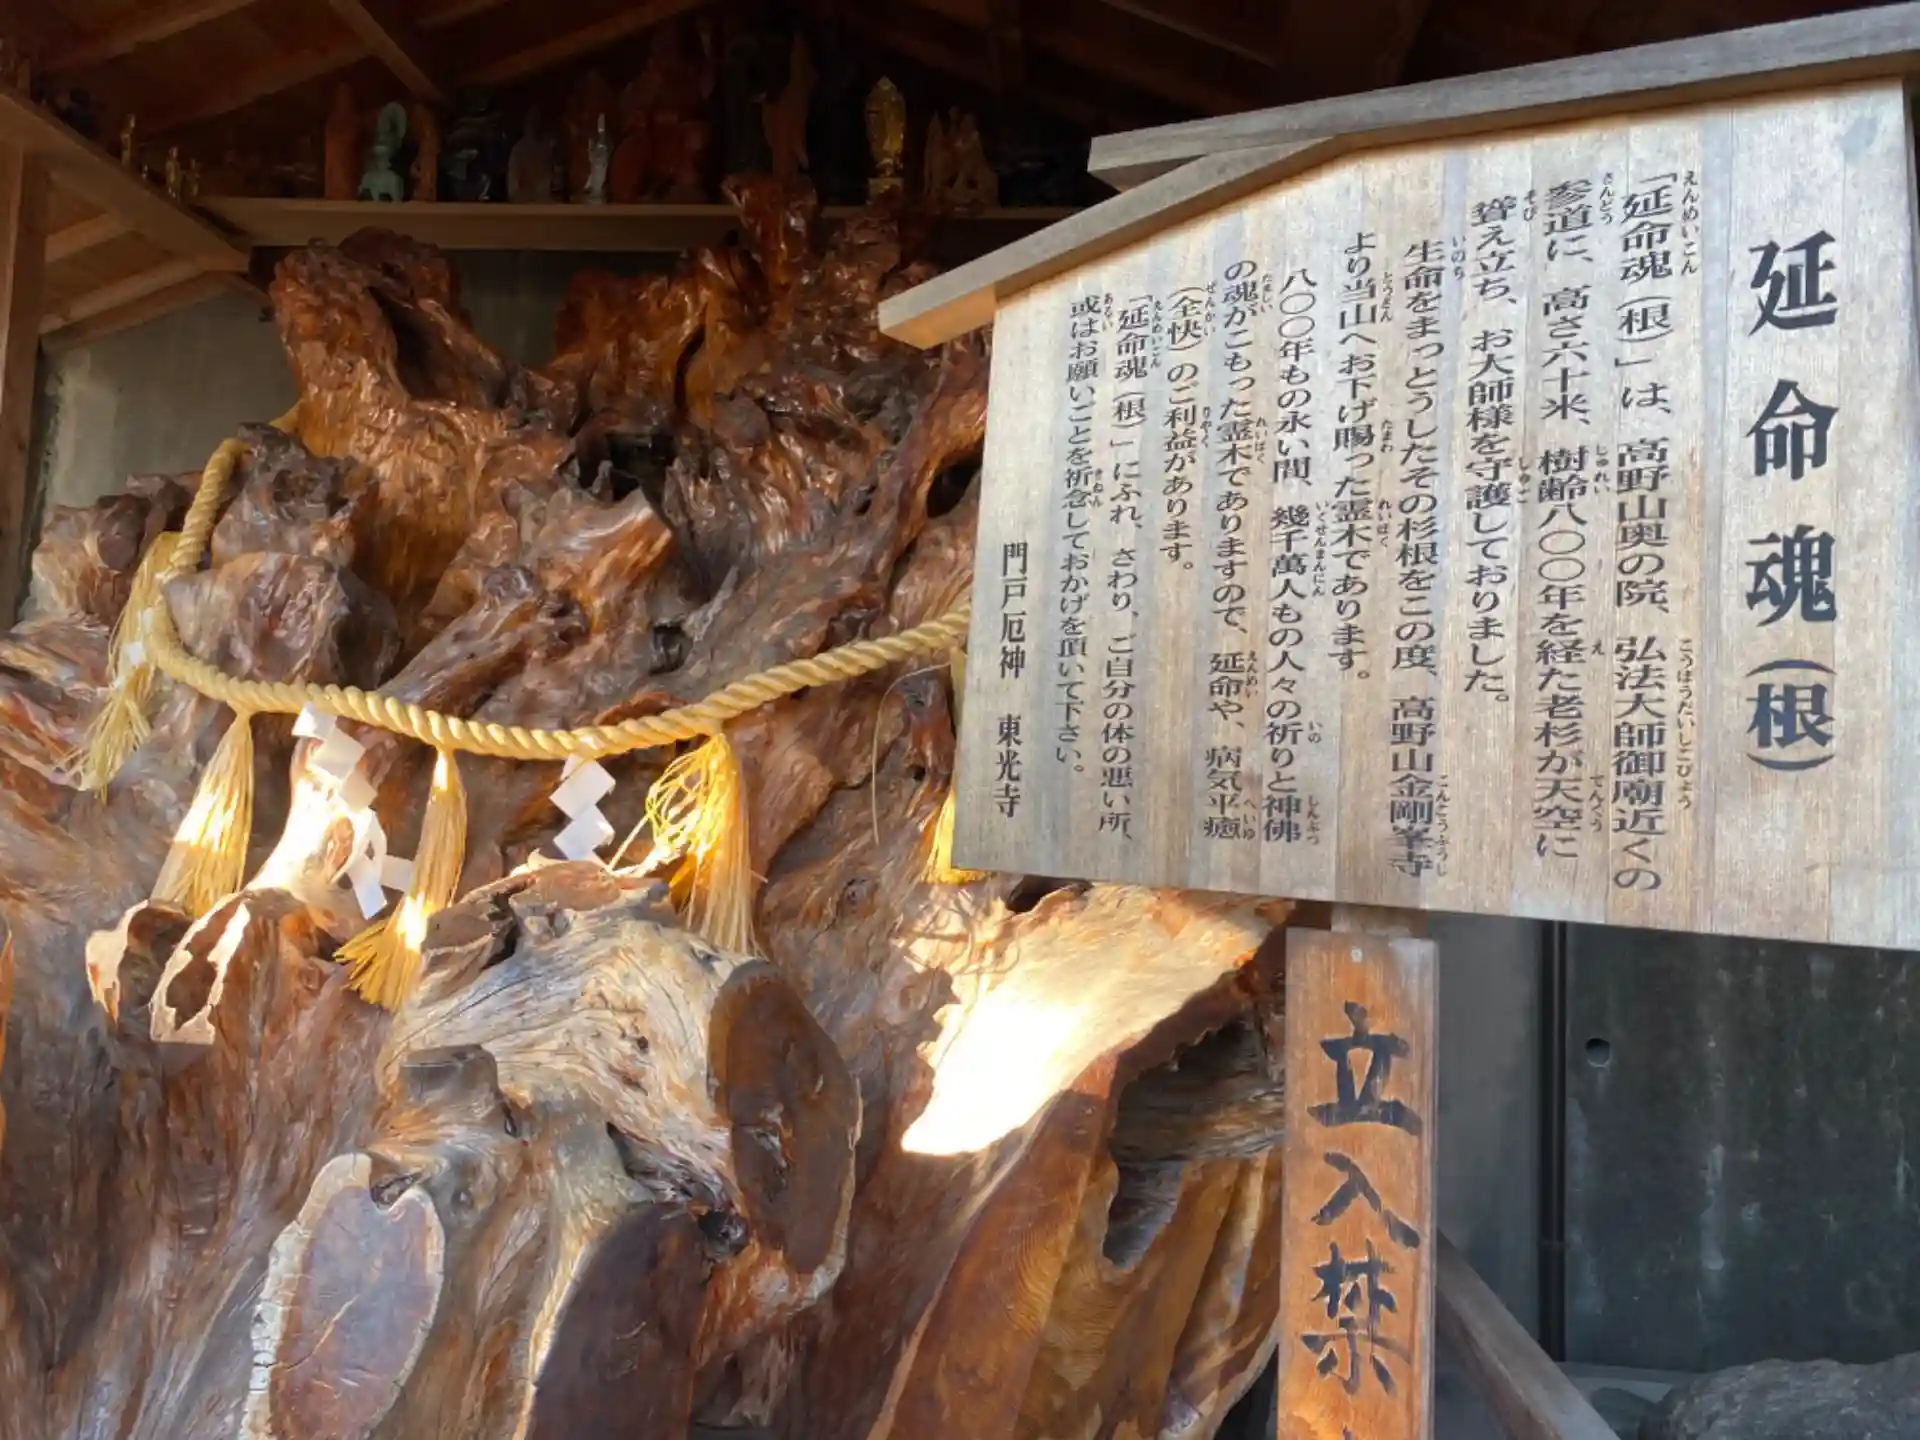 延命魂(根)
「延命魂(根)」は、高野山奥の院、弘法大師御廟近くの
参道に、高さ六十米、樹齢八〇〇年を経た老杉が天空に
聳え立ち、お大師様を守護しておりました。
生命をまっとうしたその杉根をこの度、高野山金剛峯寺
より当山へお下げ賜った霊木であります。
八〇〇年もの永い間、幾千萬人もの人々の祈りと神佛
の魂がこもった霊木でありますので、延命や、病気平癒
(全快)のご利益があります。
「延命魂(根)」にふれ、さわり、ご自分の体の悪い所、
或はお願いごとを祈念しておかげを頂いて下さい。
門戸厄神 東光寺
立入禁